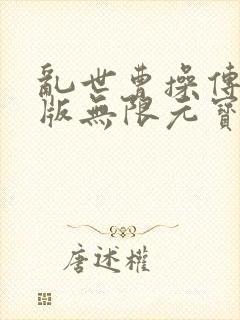 亂世曹操傳
版無限元寶
唐述權